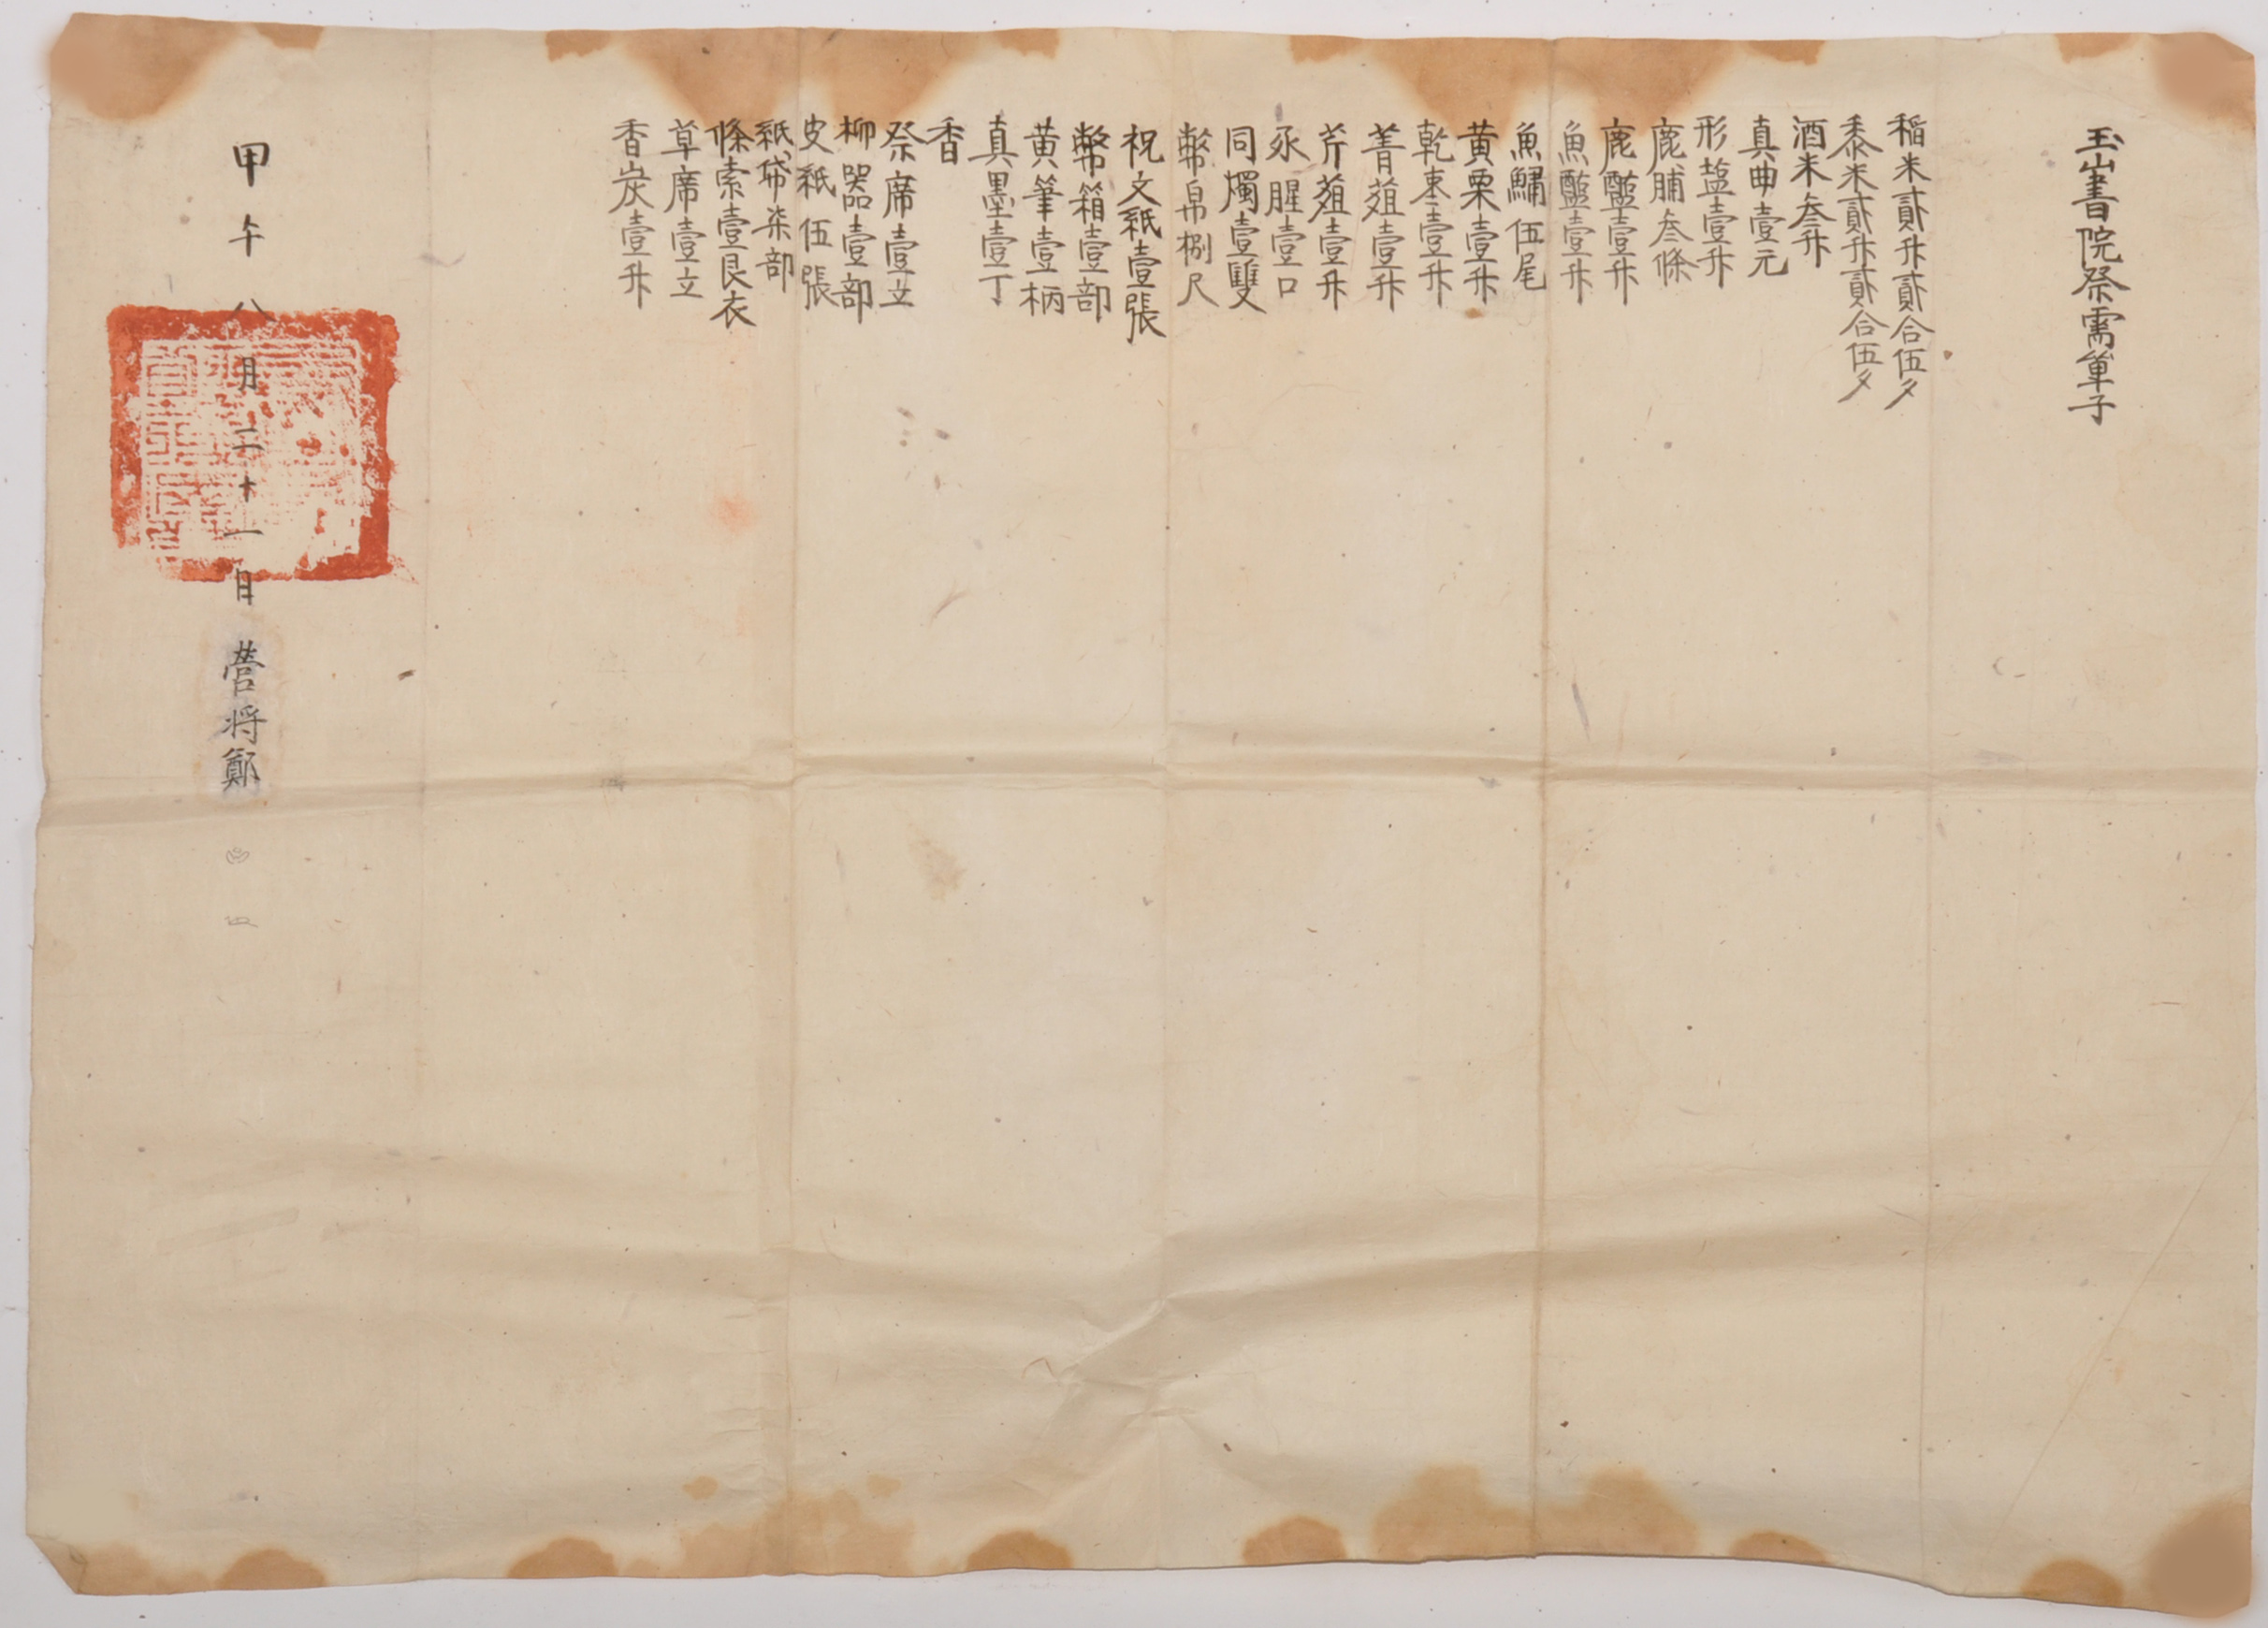 玉山書院祭需單子
稲米貳升貳合伍夕
黍米貳升貳合伍夕
酒米叁升
真曲壹元
形塩壹升
鹿脯叁條
鹿醢壹升
魚醢壹升
魚鱐伍尾
黄栗壹升
乾枣壹升
菁葅壹升
芹葅壹升
豕腥壹口
同燭壹雙
幣帛捌尺
祝文紙壹張
幣箱壹部
黄筆壹柄
真墨壹丁
香
祭席壹立
柳器壹部
皮紙伍張
紙帒柒部
條索壹艮衣
草席壹立
香炭壹升
甲午八月二十一日營将鄭